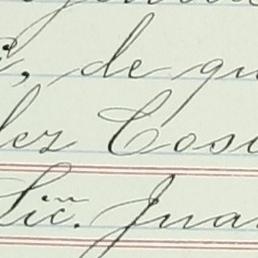 , de qu
lez Cos
Lic. Jua